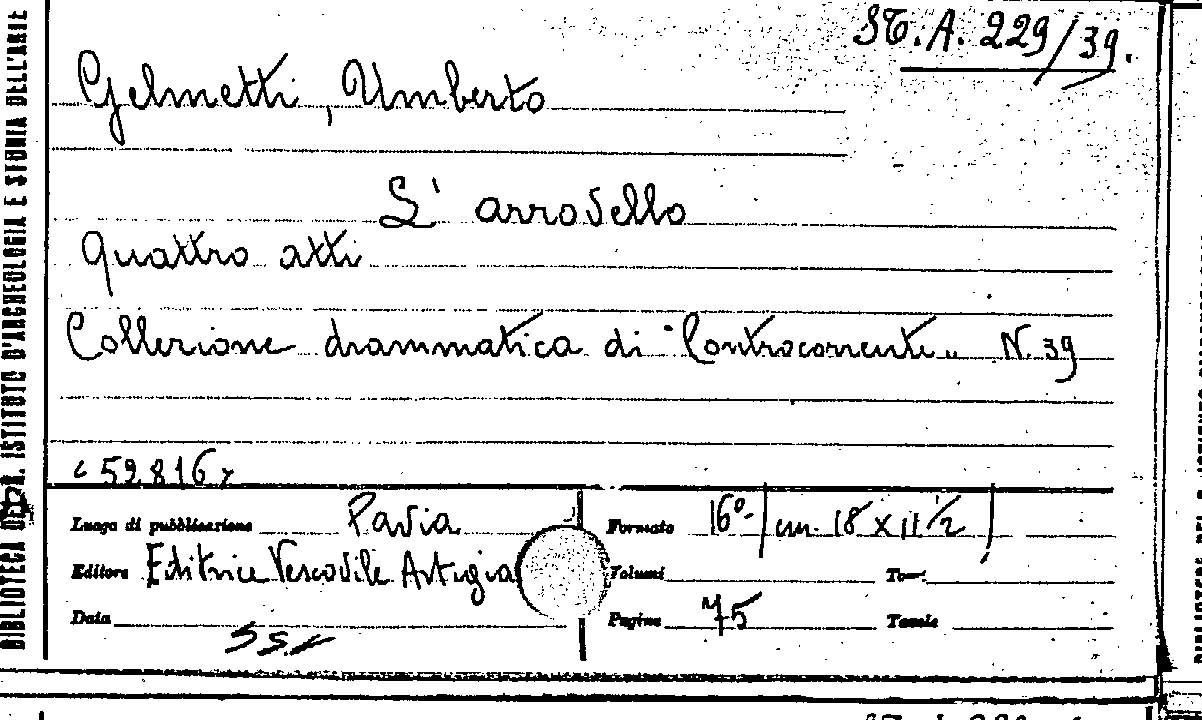 ST. A. 229/39.
Gelmetti, Umberto
L' arrovello
Quattro atti
Collezione drammatica di "Controcorrente" N. 39
<59816>
Luogo di pubblicazione Pavia Formato 16°- (cm. 18 x 11 1/2)
Editore Editrice Vescovile Artigia Volumi Tomi
Data Pagine 75 Tavole
BIBLIOTECA DEL R. ISTITUTO D'ARCHEOLOGIA E STORIA DELL'ARTE